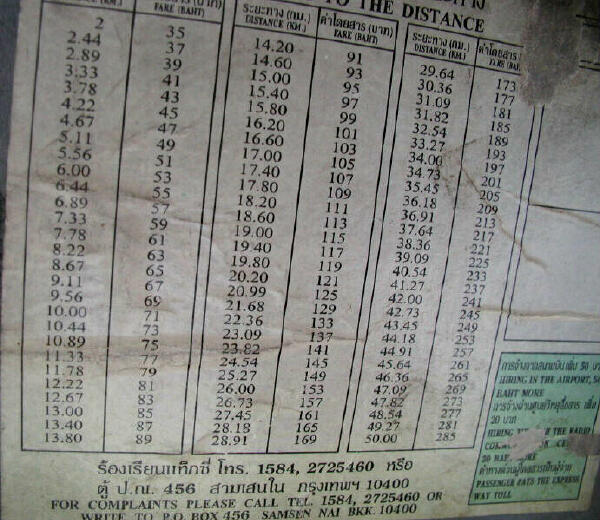 TO THE DISTANCE
FARE (BAHT) ระยะทาง (กม.) DISTANCE (KM.) ค่าโดยสาร (บาท) FARE (BAHT) ระยะทาง (กม.) DISTANCE (KM.) ค่าโดยสาร (บาท) FARE (BAHT)
2 35 14.20 91 29.64 173
2.44 37 14.60 93 30.36 177
2.89 39 15.00 95 31.09 181
3.33 41 15.40 97 31.82 185
3.78 43 15.80 99 32.54 189
4.22 45 16.20 101 33.27 193
4.67 47 16.60 103 34.00 197
5.11 49 17.00 105 34.73 201
5.56 51 17.40 107 35.45 205
6.00 53 17.80 109 36.18 209
6.44 55 18.20 111 36.91 213
6.89 57 18.60 113 37.64 217
7.33 59 19.00 115 38.36 221
7.78 61 19.40 117 39.09 225
8.22 63 19.80 119 40.54 233
8.67 65 20.20 121 41.27 237
9.11 67 20.99 125 42.00 241
9.56 69 21.68 129 42.73 245
10.00 71 22.36 133 43.45 249
10.44 73 137 44.18 253
10.89 75 23.82 141 44.91 257
11.33 77 24.54 145 45.64 261
11.78 79 25.27 149 46.36 265
12.22 81 26.00 153 47.09 269
12.67 83 26.73 157 47.82 273
13.00 85 27.45 161 48.54 277
13.40 87 28.18 165 49.27 281
13.80 89 28.91 169 50.00 285
ร้องเรียนแท็กซี่ โทร. 1584, 2725460 หรือ
ตู้ ป.ณ. 456 สามเสนใน กรุงเทพฯ 10400
FOR COMPLAINTS PLEASE CALL TEL. 1584, 2725460 OR
WRITE TO P.O. BOX 456 SAMSEN NAI BKK. 10400
HIRING IN THE AIRPORT,
BAHT MORE
20 บาท
HIRING THE RADIO
20
PASSENGER PAYS THE EXPRESS
WAY TOLL